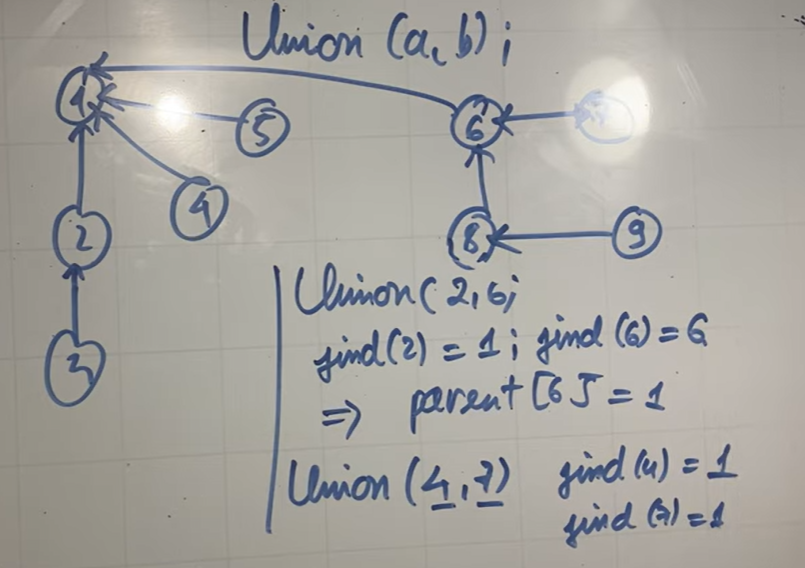 Union (a, b) ;
1
5
6
4
2
8
9
3
Union ( 2, 6;
find(2) = 1 ; find (6) = 6
=> parent [6] = 1
Union (4, 7) find (4) = 1
find (7) = 1